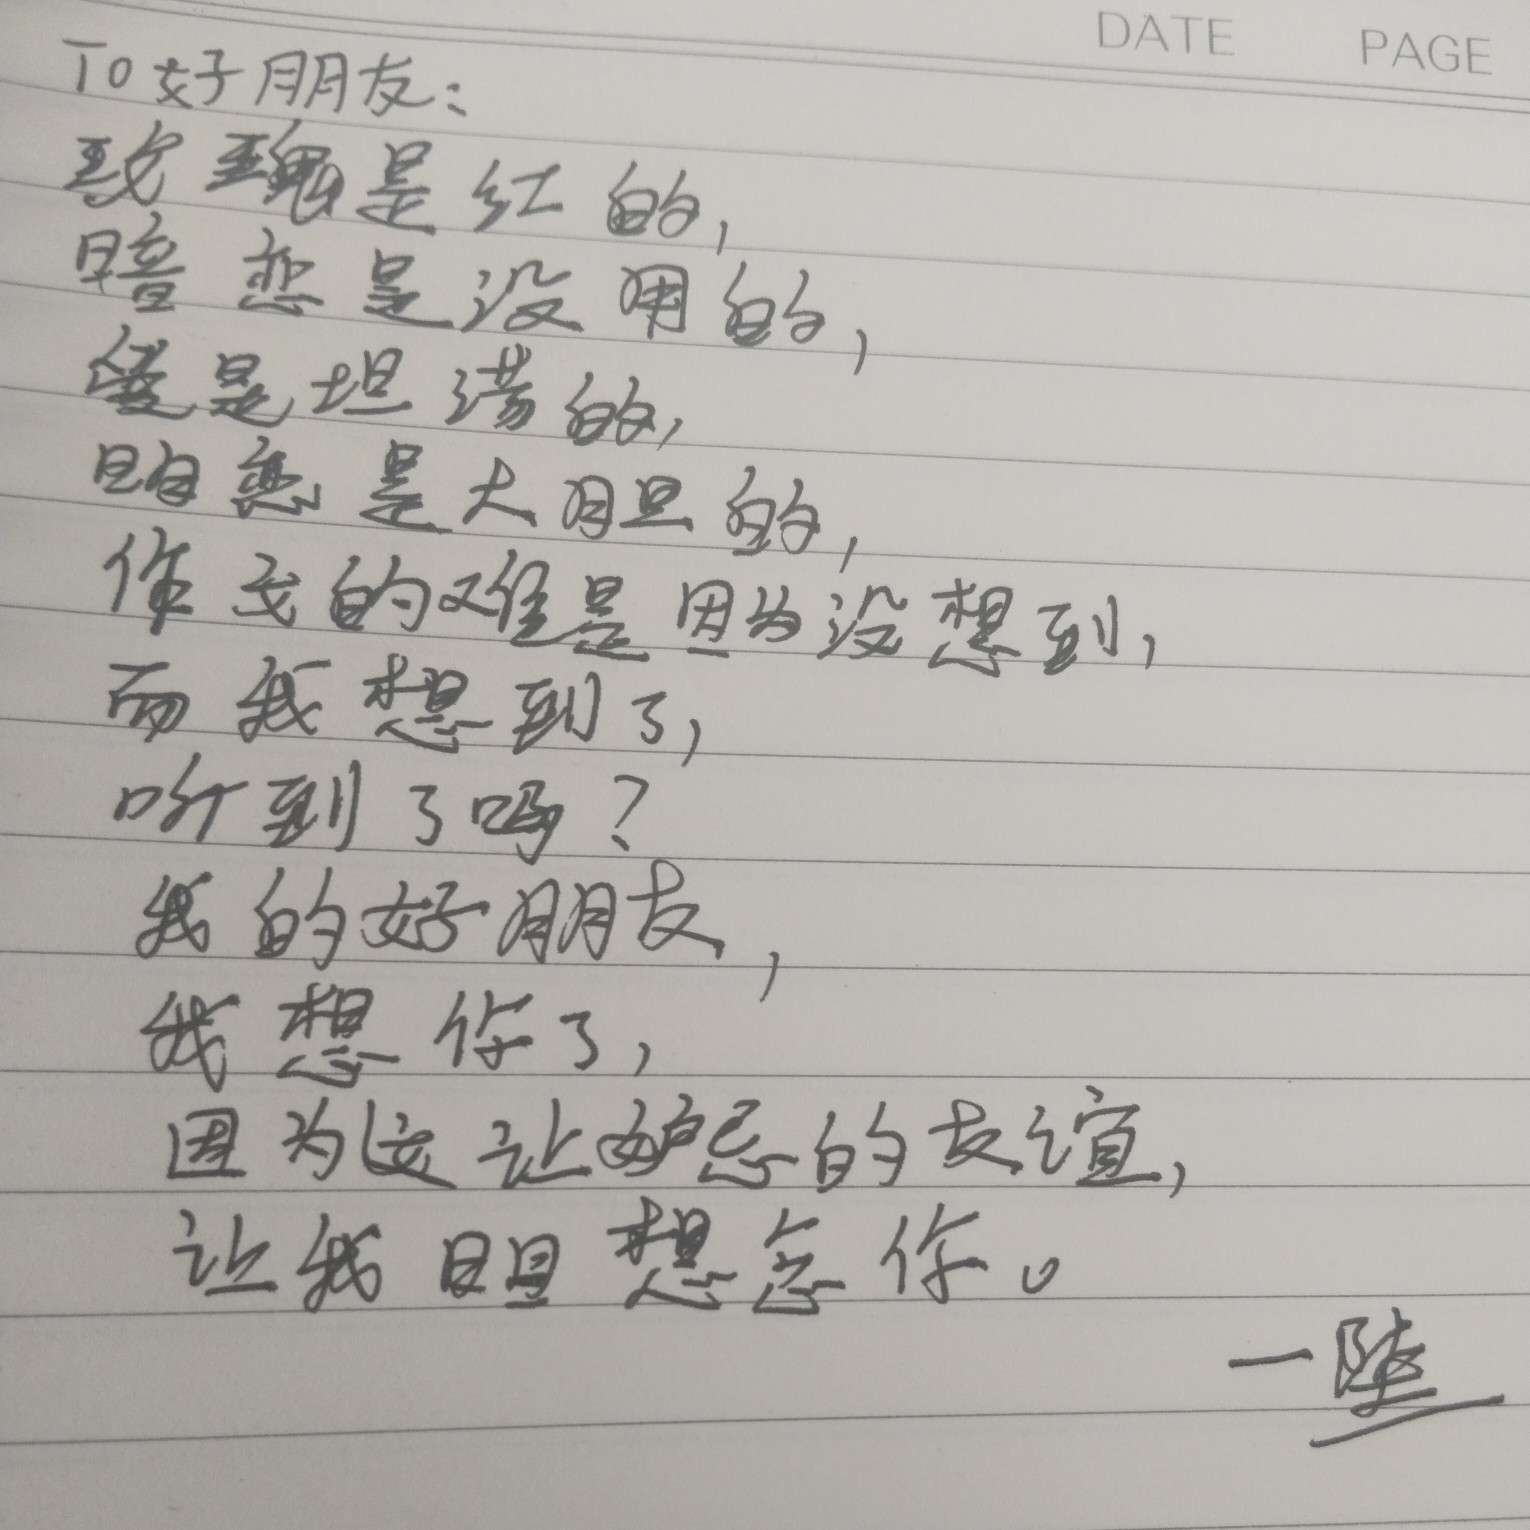 DATE PAGE
To 好朋友：
玫瑰是红的,
暗恋是没用的,
爱是坦荡的,
明恋是大胆的,
作文的难是因为没想到,
而我想到了,
听到了吗？
我的好朋友,
我想你了,
因为这让妒忌的友谊,
让我想念你。
一陆